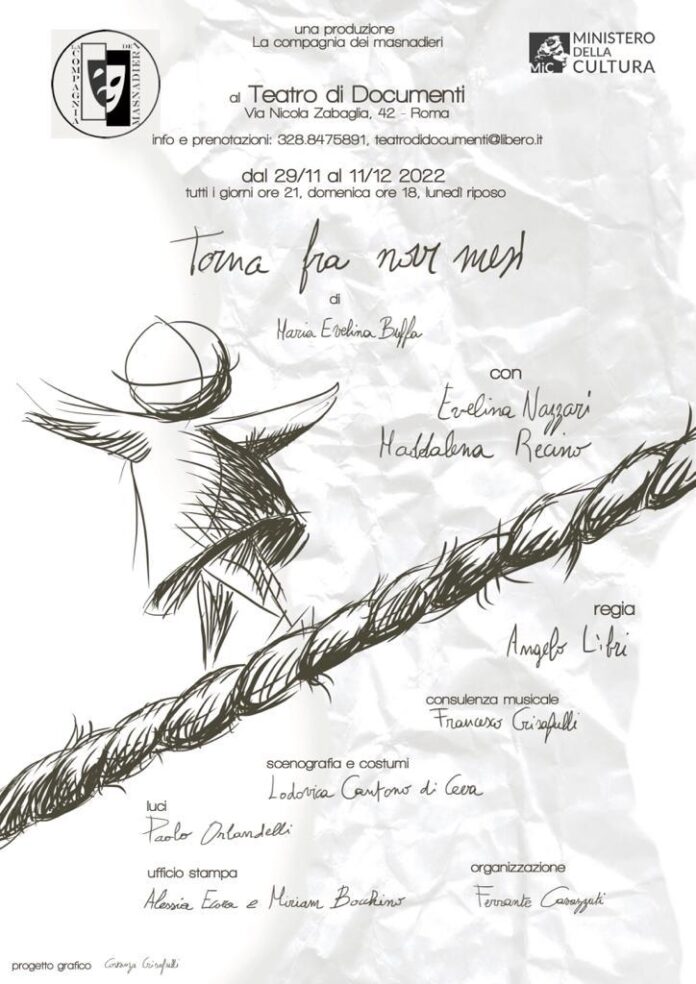 una produzione
La compagnia dei masnadieri
LA COMPAGNIA
DEI MASNADIERI
MiC
MINISTERO
DELLA
CULTURA
al Teatro di Documenti
Via Nicola Zabaglia, 42 - Roma
info e prenotazioni: 328.8475891, teatrodidocumenti@libero.it
dal 29/11 al 11/12 2022
tutti i giorni ore 21, domenica ore 18, lunedì riposo
Torna fra nove mesi
di
Maria Evelina Buffa
con
Evelina Nazzari
Maddalena Recino
regia
Angelo Libri
consulenza musicale
Francesco Crisafulli
scenografia e costumi
Lodovica Cantono di Ceva
luci
Paolo Orlandelli
ufficio stampa
Alessia Ecora e Miriam Bocchino
organizzazione
Ferrante Casazzuti
progetto grafico Costanza Crisafulli